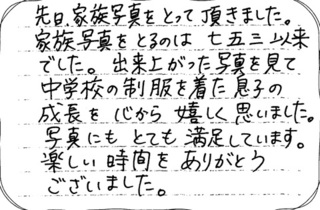 先日、家族写真をとって頂きました。
家族写真をとるのは七五三以来
でした。出来上がった写真を見て
中学校の制服を着た息子の
成長を心から嬉しく思いました。
写真にもとても満足しています。
楽しい時間をありがとう
ございました。